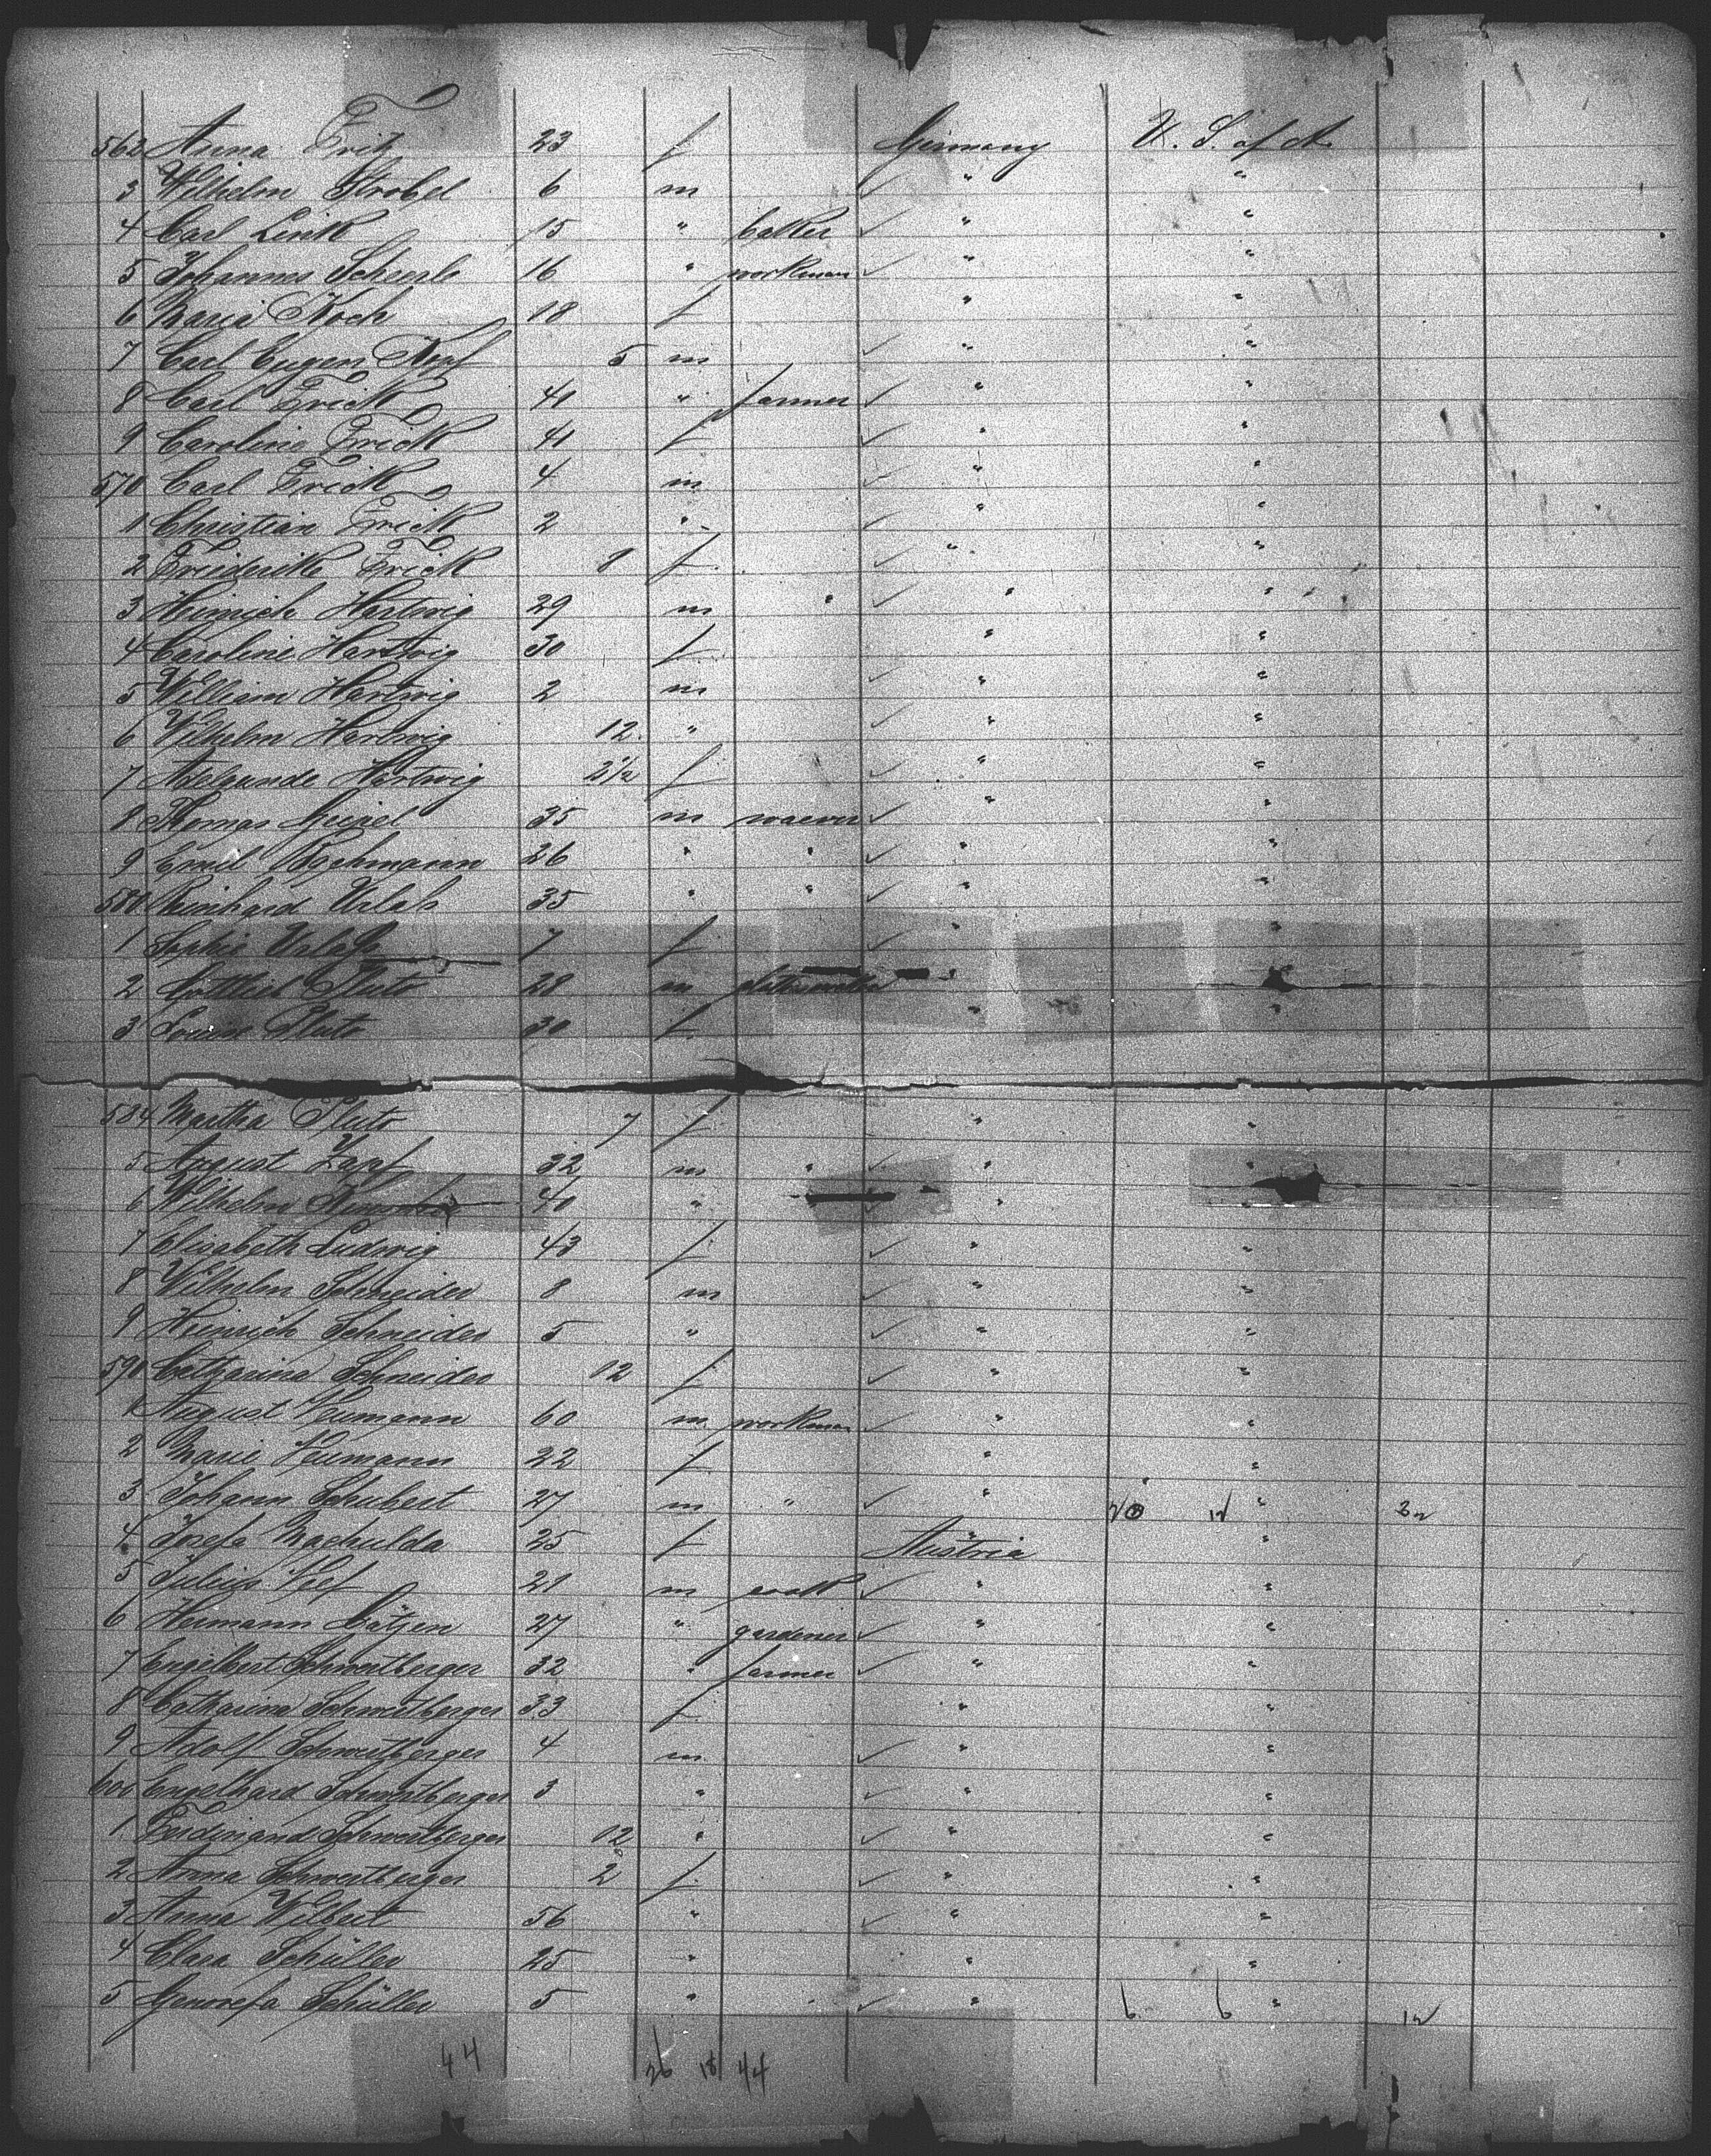 562 Anna Fritz 23 f Germany U. S. of A.
3 Wilhelm Strobel 6 m " "
4 Carl Link 15 " baker " "
5 Johannes Scheerle 16 " workman " "
6 Maria Koch 18 f " "
7 Carl Eugen 5 m " "
8 Carl Frick 41 " farmer " "
9 Caroline Frick 41 f " "
570 Carl Frick 4 m " "
1 Christian Frick 2 " " "
2 Friederike Frick 8 f " "
3 Heinrich Hartwig 29 m " " "
4 Caroline Hartwig 30 f " "
5 William Hartwig 2 m " "
6 Wilhelm Hartwig 12 " " "
7 Adelgunde Hartwig 2 1/2 f " "
8 Thomas Geipel 35 m waever " "
9 Emil 26 " " " "
580 Reinhard Urlab 35 " " " "
1 Sophie 7 f " "
2 Gottlieb Pluto 28 m " "
3 Louise Pluto 30 f " "
584 Martha Pluto 7 f " "
5 August Zapf 32 m " " "
6 Wilhelm 40 " " "
7 Elisabeth Ludwig 43 f " "
8 Wilhelm Schneider 8 m " "
9 Heinrich Schneider 5 " " "
590 Catharina Schneider 12 f " "
1 August Neumann 60 m workman " "
2 Marie Neumann 22 f " "
3 Johann Schubert 27 m " " "
4 Josefa Machulda 25 f Austria "
5 Julius 21 m cook " "
6 Hermann Bätjen 27 " gardener " "
7 Engelbert Schwertberger 32 " farmer " "
8 Catharina Schwertberger 33 f " "
9 Adolf Schwertberger 4 m " "
600 Engelhard Schwertberger 3 " " "
1 Ferdinand Schwertberger 12 " " "
2 Anna Schwertberger 2 f " "
3 Anna Wilbert 56 " " "
4 Clara Schüller 25 " " "
5 Genovefa Schüller 5 " " " 6 6
44 26 18 44